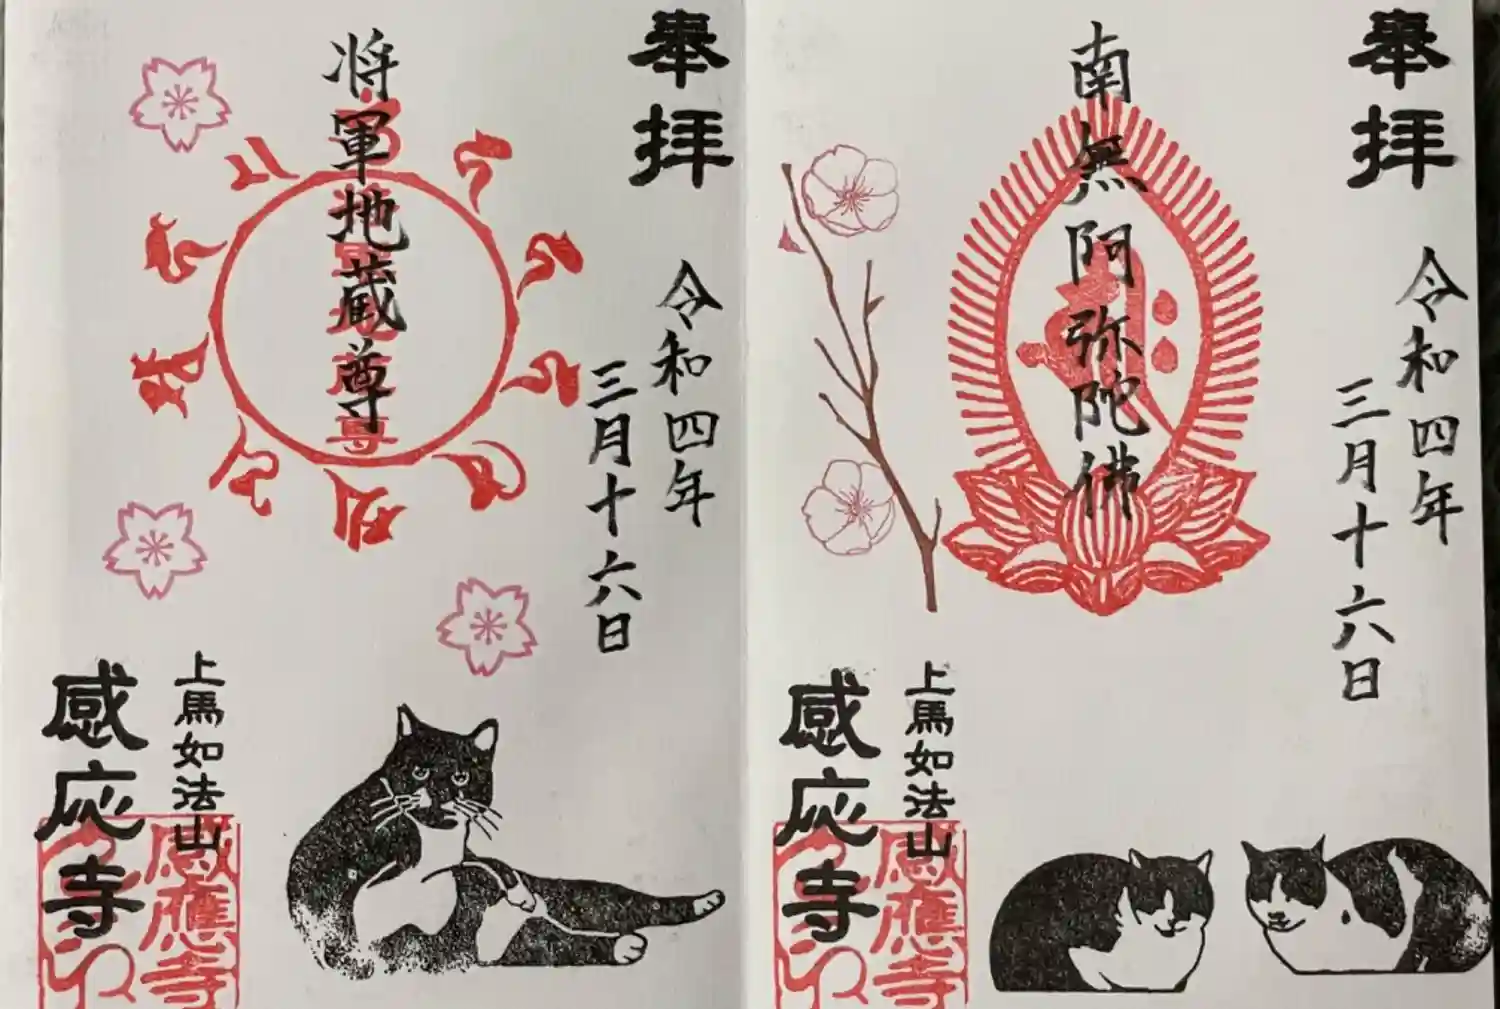 奉拝
令和四年
三月十六日
南無阿弥陀佛
上馬如法山
感応寺
感應寺
奉拝
令和四年
三月十六日
将軍地蔵尊
上馬如法山
感応寺
感應寺